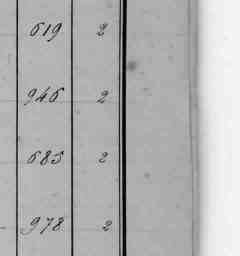 619 2
946 2
685 2
978 2